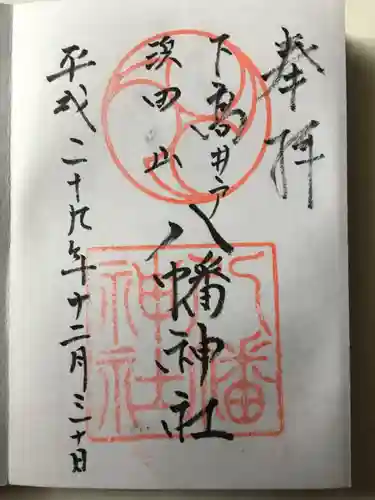 奉拝
下高井戸八幡神社
浜田山
平成二十九年十二月三十日
八幡
神社